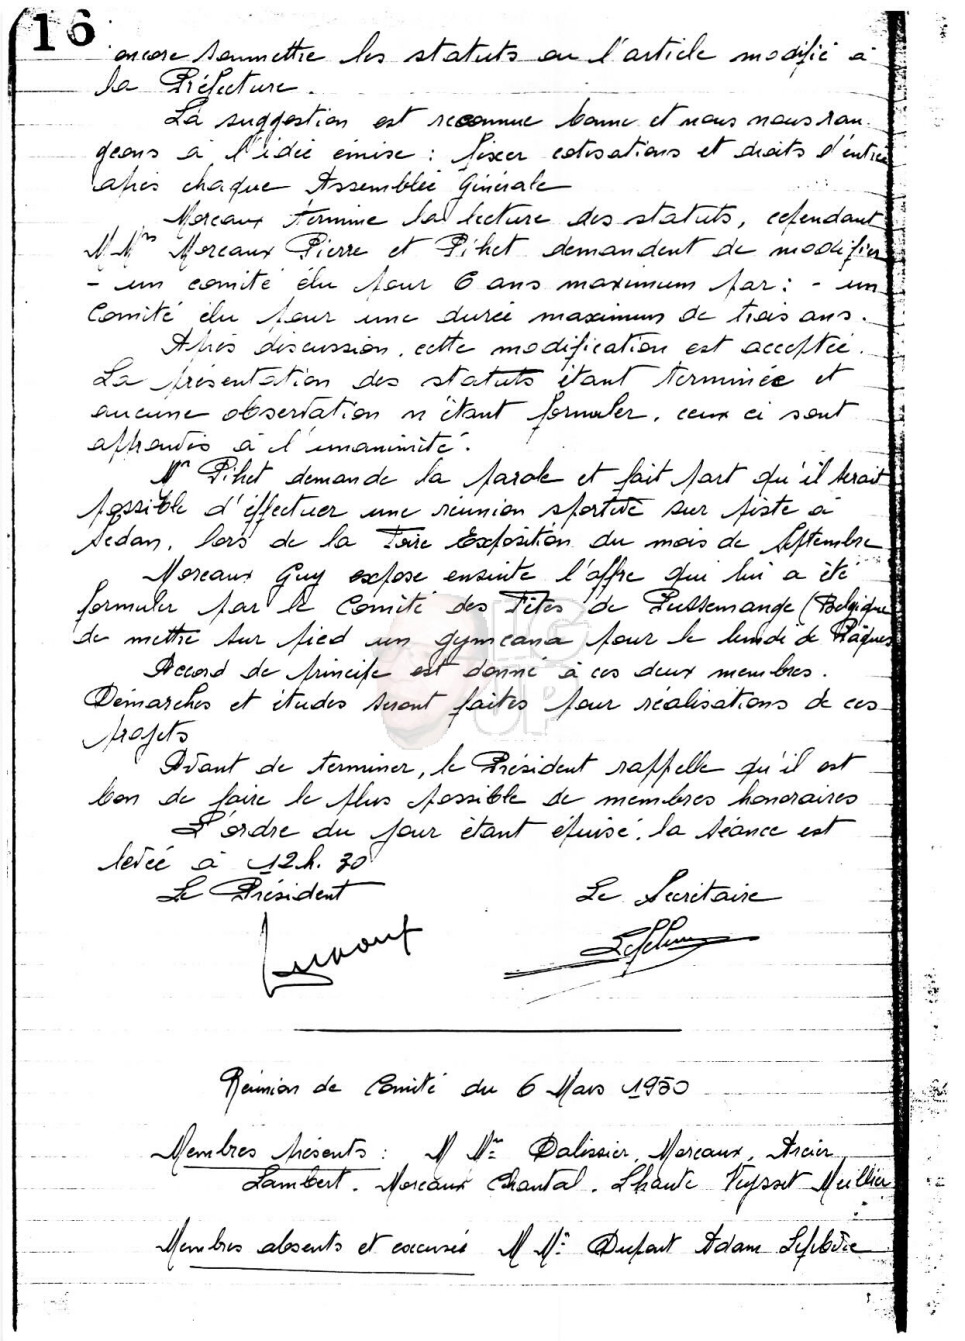 16
encore soumettre les statuts ou l'article modifié à
la Préfecture.
La suggestion est reconnue bonne et nous nous ran-
geons à l'idée émise : fixer cotisations et droits d'entrée
après chaque Assemblée Générale
Moreaux termine la lecture des statuts, cependant
M Mrs Moreaux Pierre et Pihet demandent de modifier
- un comité élu pour 6 ans maximum par : - un
Comité élu pour une durée maximum de trois ans.
Après discussion, cette modification est acceptée.
La présentation des statuts étant terminée et
aucune observation n'étant formuler, ceux ci sont
approuvés à l'unanimité.
Mr Pihet demande la parole et fait part qu'il serait
possible d'effectuer une réunion sportive sur piste à
Sedan, lors de la Foire Exposition du mois de Septembre
Moreaux Guy expose ensuite l'offre qui lui a été
formuler par le Comité des Fêtes de Pussemange (Belgique
de mettre sur pied un gymcana pour le lundi de Pâques
Accord de principe est donné à ces deux membres.
Démarches et études seront faites pour réalisations de ces
projets
Avant de terminer, le Président rappelle qu'il est
bon de faire le plus possible de membres honoraires
L'ordre du jour étant épuisé, la séance est
levée à 12 h. 30
Le Président Le Secrétaire
Réunion de Comité du 6 Mars 1950
Membres présents : M Mrs Dalissier, Moreaux, Arcier
Lambert. Moreaux Chantal. Lhaute Veysset Meillier
Membres absents et excusés M Mrs Dupont Adam Lefebvre